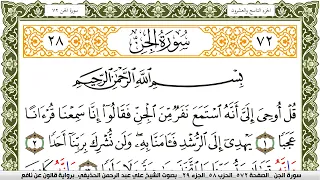 الجزء التاسع والعشرون
سورة الجن ٧٢
٢٨ سُورَةُ الجِنِّ ٧٢
بِسْمِ اللَّهِ الرَّحْمَٰنِ الرَّحِيمِ
قُلْ أُوحِيَ إِلَيَّ أَنَّهُ اسْتَمَعَ نَفَرٌ مِّنَ الْجِنِّ فَقَالُوا إِنَّا سَمِعْنَا قُرْءَانًا
عَجَبًا ١ يَهْدِي إِلَى الرُّشْدِ فَـَٔامَنَّا بِهِ وَلَن نُّشْرِكَ بِرَبِّنَا أَحَدًا ٢
سورة الجن . الصفحة ٥٧٢ .الحزب ٥٨ .الجزء ٢٩ . بصوت الشيخ علي عبد الرحمن الحذيفي. برواية قالون عن نافع